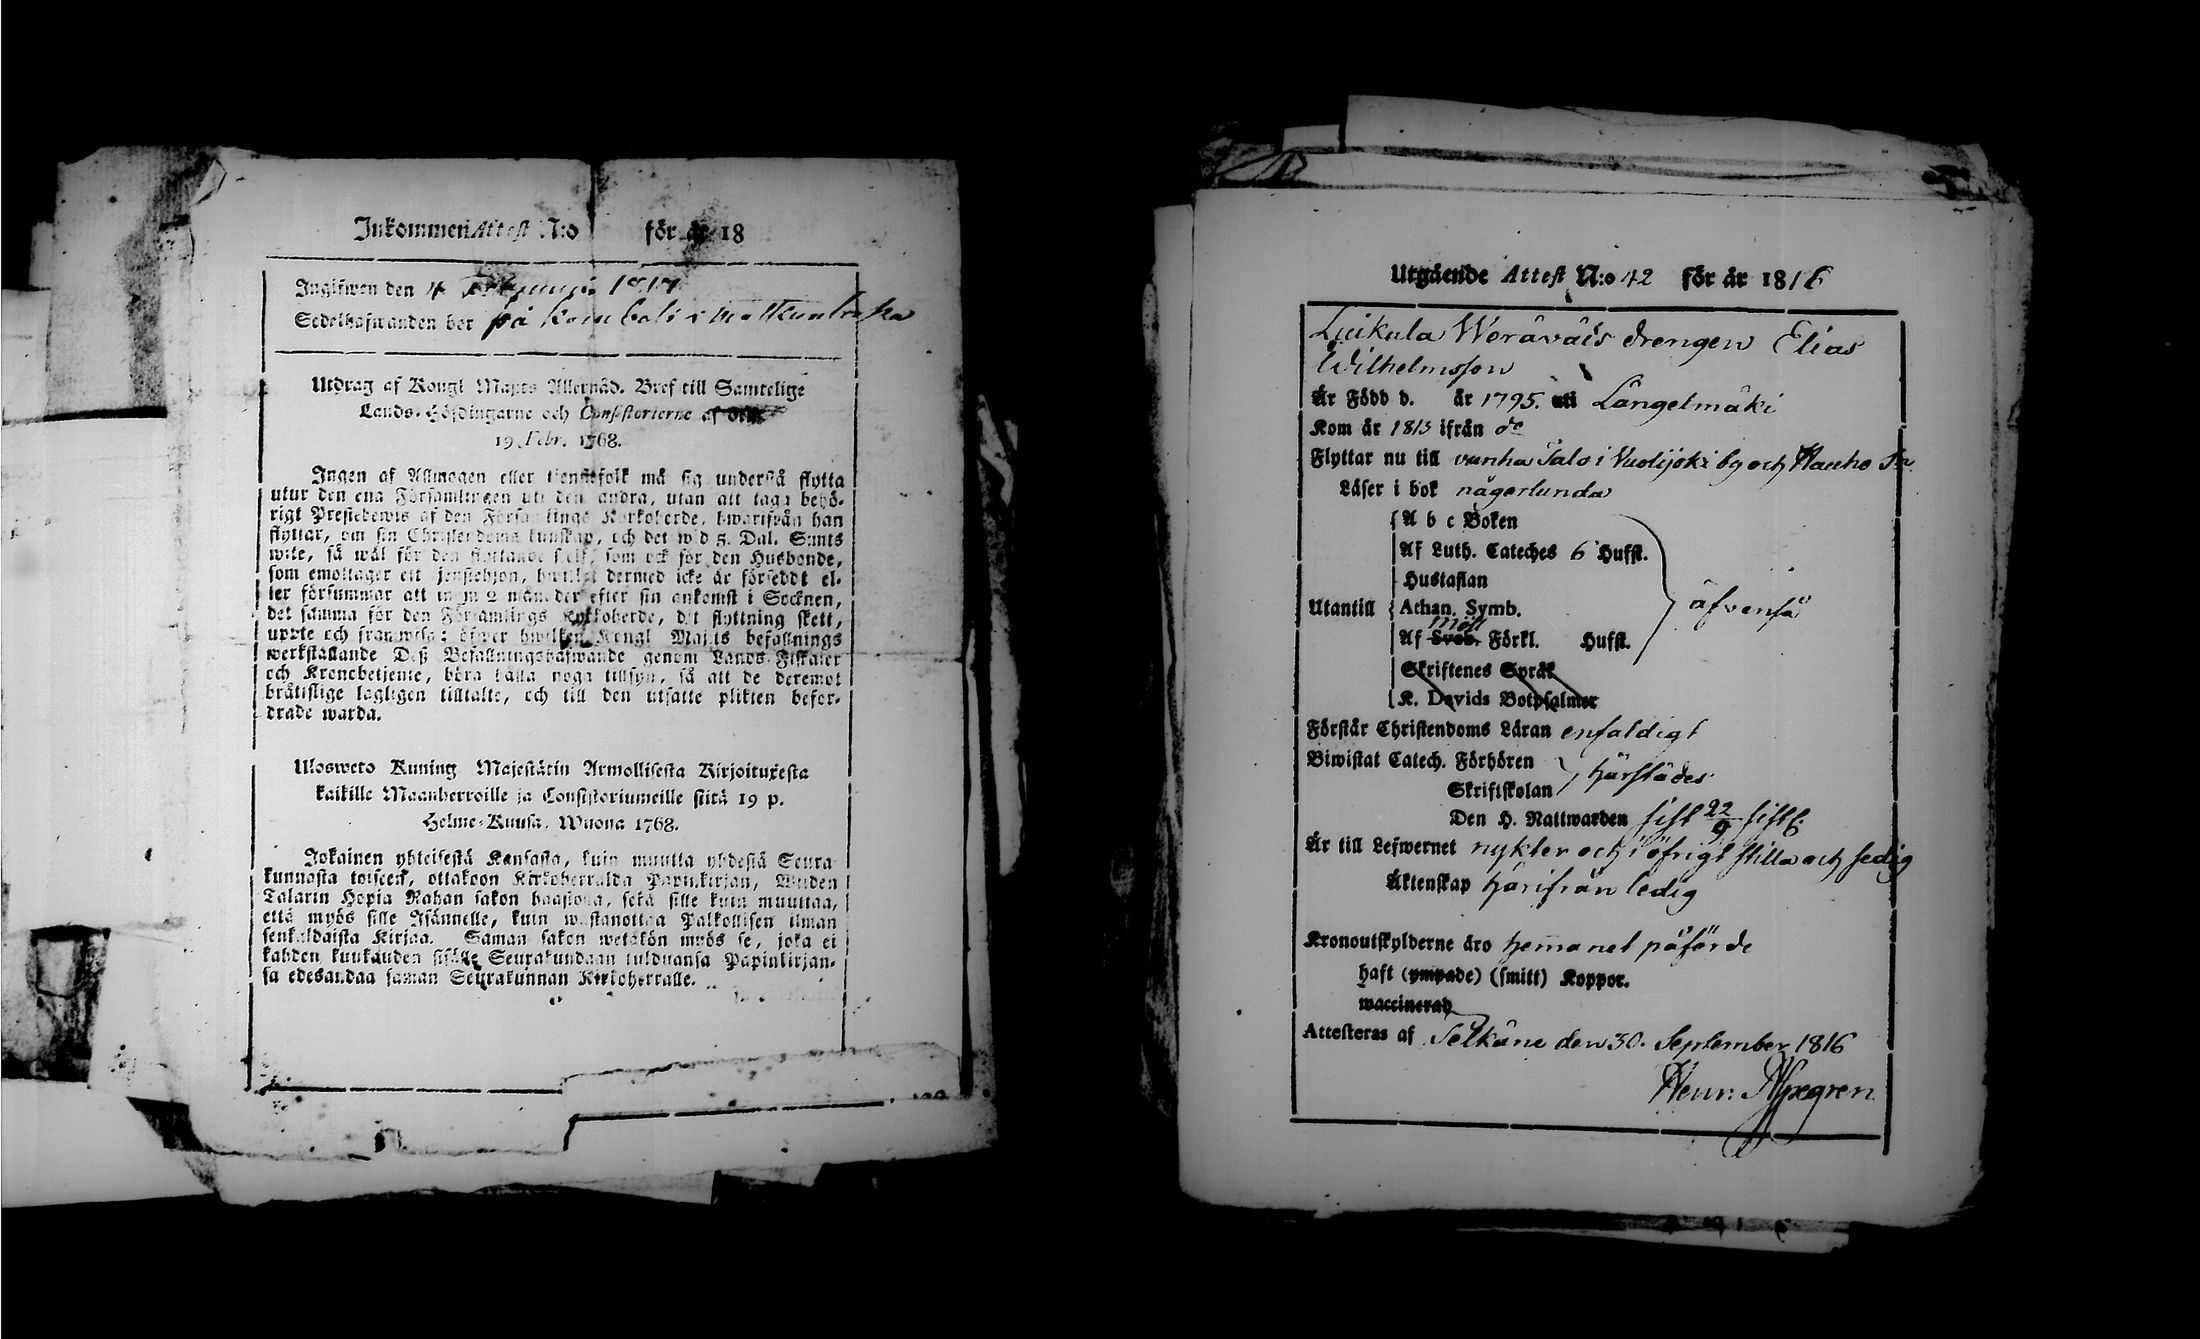 Inkommen Attest N:o för år 18
Ingifwen den 4 1817
Sedelhafwanden bor på
Utdrag af Kongl Maj:ts Allernåd. Bref till Samtelige
Lands-Höfdingarne och Consistorierne af den
19 Febr. 1768.
Ingen af Allmogen eller tjenstefolk må sig understå flytta
utur den ena Församlingen uti den andra, utan att taga behö-
rigt Prestebewis af den Församlings Kyrkoherde, hwarifrån han
flyttar, om sin Christendoms kunskap, och det wid 5. Dal. S:mts
wite, så wäl för den flyttande sielf, som ock för den Husbonde,
som emottager ett tjenstehjon, hwilket dermed icke är försedt el-
ler försummar att inom 2 månader efter sin ankomst i Socknen,
det samma för den Församlings Kyrkoherde, dit flyttning skett,
uppte och framwisa: öfwer hwilken Kongl Maj:ts befallnings
werkställande Deß Befallningshafwande genom Lands Fiskaler
och Kronobetjente, böra hålla noga tillsyn, så att de deremot
bråtslige lagligen tilltalte, och till den utsatte plikten befor-
drade warda.
Ulosweto Kuning Majestätin Armollisesta Kirjoituxesta
kaikille Maanherroille ja Consistoriumeille siitä 19 p.
Helme-Kuusa, Wuona 1768.
Jokainen yhteisestä Kansasta, kuin muutta yhdestä Seura
kunnasta toiseen, ottakoon Kirkoherralda Papinkirjan, Wiiden
Talarin Hopia Rahan sakon haastolla, sekä sille kuin muuttaa,
että myös sille Isännelle, kuin wastanottaa Palkollisen ilman
senkaldaista Kirjaa. Saman sakon wetäkön myös se, joka ei
kahden kuukauden sisälle Seurakundaan tulduansa Papinkirjan-
sa edesandaa saman Seurakunnan Kirkoherralle.
Utgående Attest N:o 42 för år 1816
Luikala Weräväis drengen Elias
Wilhelmsson
Är Född d. år 1795. uti Längelmäki
Kom år 1813 ifrån do
Flyttar nu till vanha Talo i Vuolijoki by och Hauho Sn
Läser i bok någorlunda
A b c Boken
Af Luth. Cateches 6 Hufst.
Hustaflan
Utantill Athan. Symb. äfvenså
Möll
Af Sveb. Förkl. Hufst.
Skriftenes Språk
K. Davids Botpsalmer
Förstår Christendoms Läran enfaldigt
Biwistat Catech. Förhören
Skriftskolan härstädes
Den H. Nattwarden sist 22/9 sistl.
Är till Lefwernet nykter och i öfrigt stilla och sedig
Äktenskap härifrån ledig
Kronoutskylderne äro hemmanet påförde
haft (ympade) (smitt) Koppor.
waccinerad
Attesteras af Selkäne den 30. September 1816
Henr: Alfregren